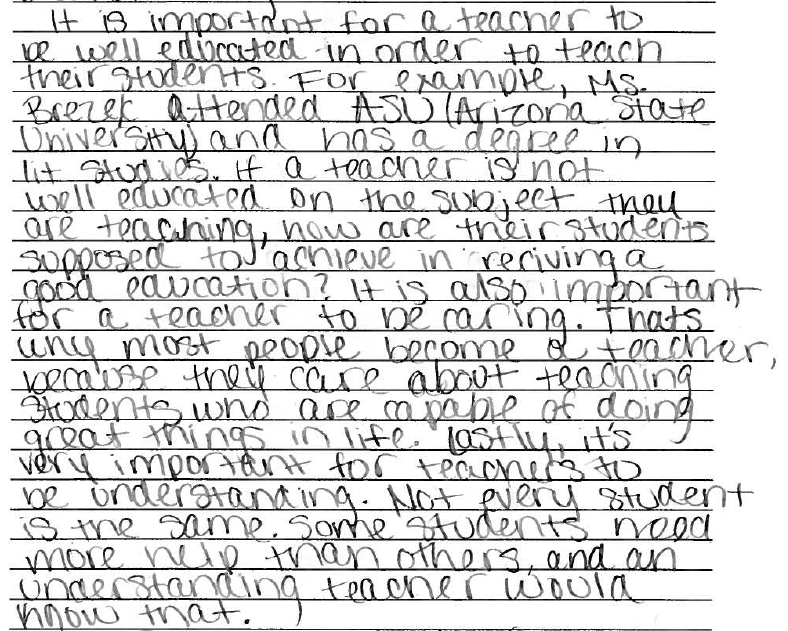 It is important for a teacher to
be well educated in order to teach
their students. For example, Ms.
Brezek attended ASU (Arizona State
University) and has a degree in
lit studies. If a teacher is not
well educated on the subject they
are teaching, how are their students
supposed to achieve in reciving a
good education? It is also important
for a teacher to be caring. Thats
why most people become a teacher,
because they care about teaching
students who are capable of doing
great things in life. Lastly, it's
very important for teachers to
be understanding. Not every student
is the same. Some students need
more help than others, and an
understanding teacher would
know that.